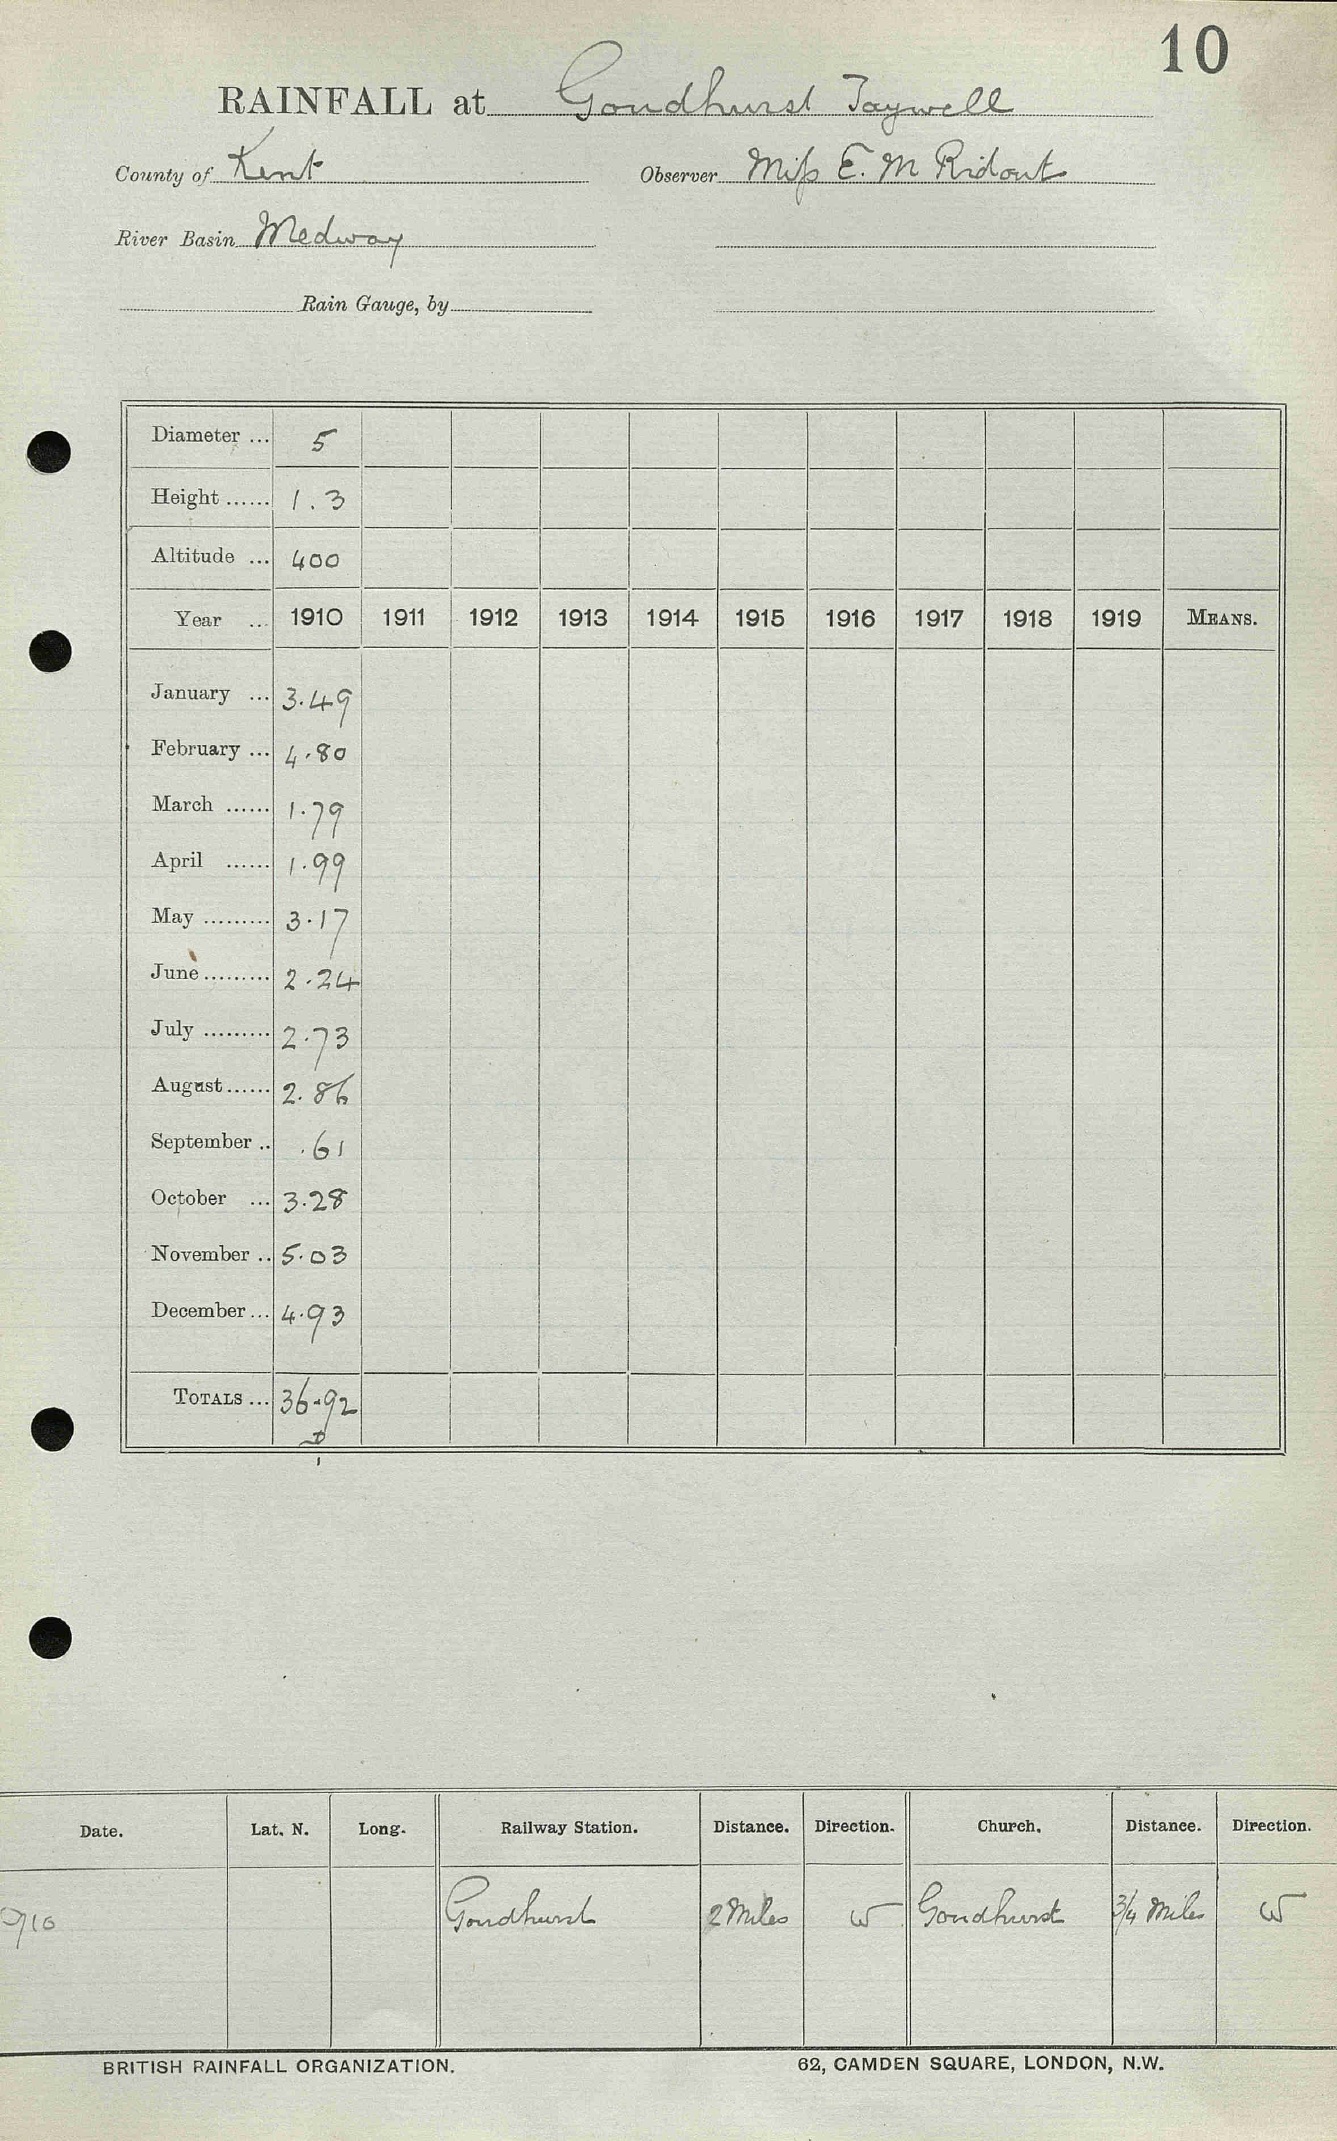 10
RAINFALL at Goudhurst Taywell
County of Kent Observer Miss E. M Ridout
River Basin Medway
Rain Gauge, by
Diameter ... 5
Height ...... 1.3
Altitude ... 400
Year ... 1910 1911 1912 1913 1914 1915 1916 1917 1918 1919 MEANS.
January ... 3.49
February ... 4.80
March ...... 1.79
April ...... 1.99
May ......... 3.17
June ......... 2.24
July ......... 2.73
August ...... 2.86
September .. .61
October ... 3.28
November .. 5.03
December ... 4.93
TOTALS ... 36.92
Date. Lat. N. Long. Railway Station. Distance. Direction. Church. Distance. Direction.
910 Goudhurst 2 Miles W Goudhurst 3/4 Miles W
BRITISH RAINFALL ORGANIZATION. 62, CAMDEN SQUARE, LONDON, N.W.